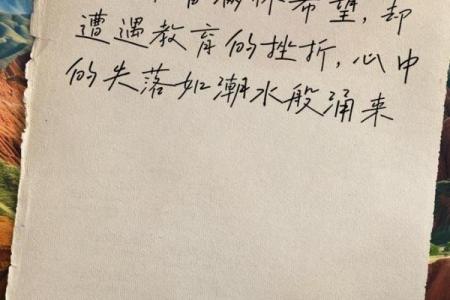 满怀希望，却
遭遇教育的挫折，心中
的失落如潮水般涌来